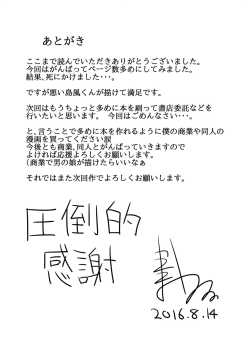 あとがき
ここまで読んでいただきありがとうございました。
今回はがんばってページ数多めにしてみました。
結果、死にかけました・・・。
ですが思い島風くんが描けて満足です。
次回はもうちょっと多めに本を刷って書店委託などを
行いたいと思います。 今回はごめんなさい・・・。
と、言うことで多めに本を作れるように僕の商業や同人の
漫画を買ってください涙
今後とも商業、同人とがんばっていきますので
よければ応援よろしくお願いします。
(商業で男の娘が描けたらいいなぁ
それではまた次回作でよろしくお願いします。
圧倒的
感謝
2016.8.14